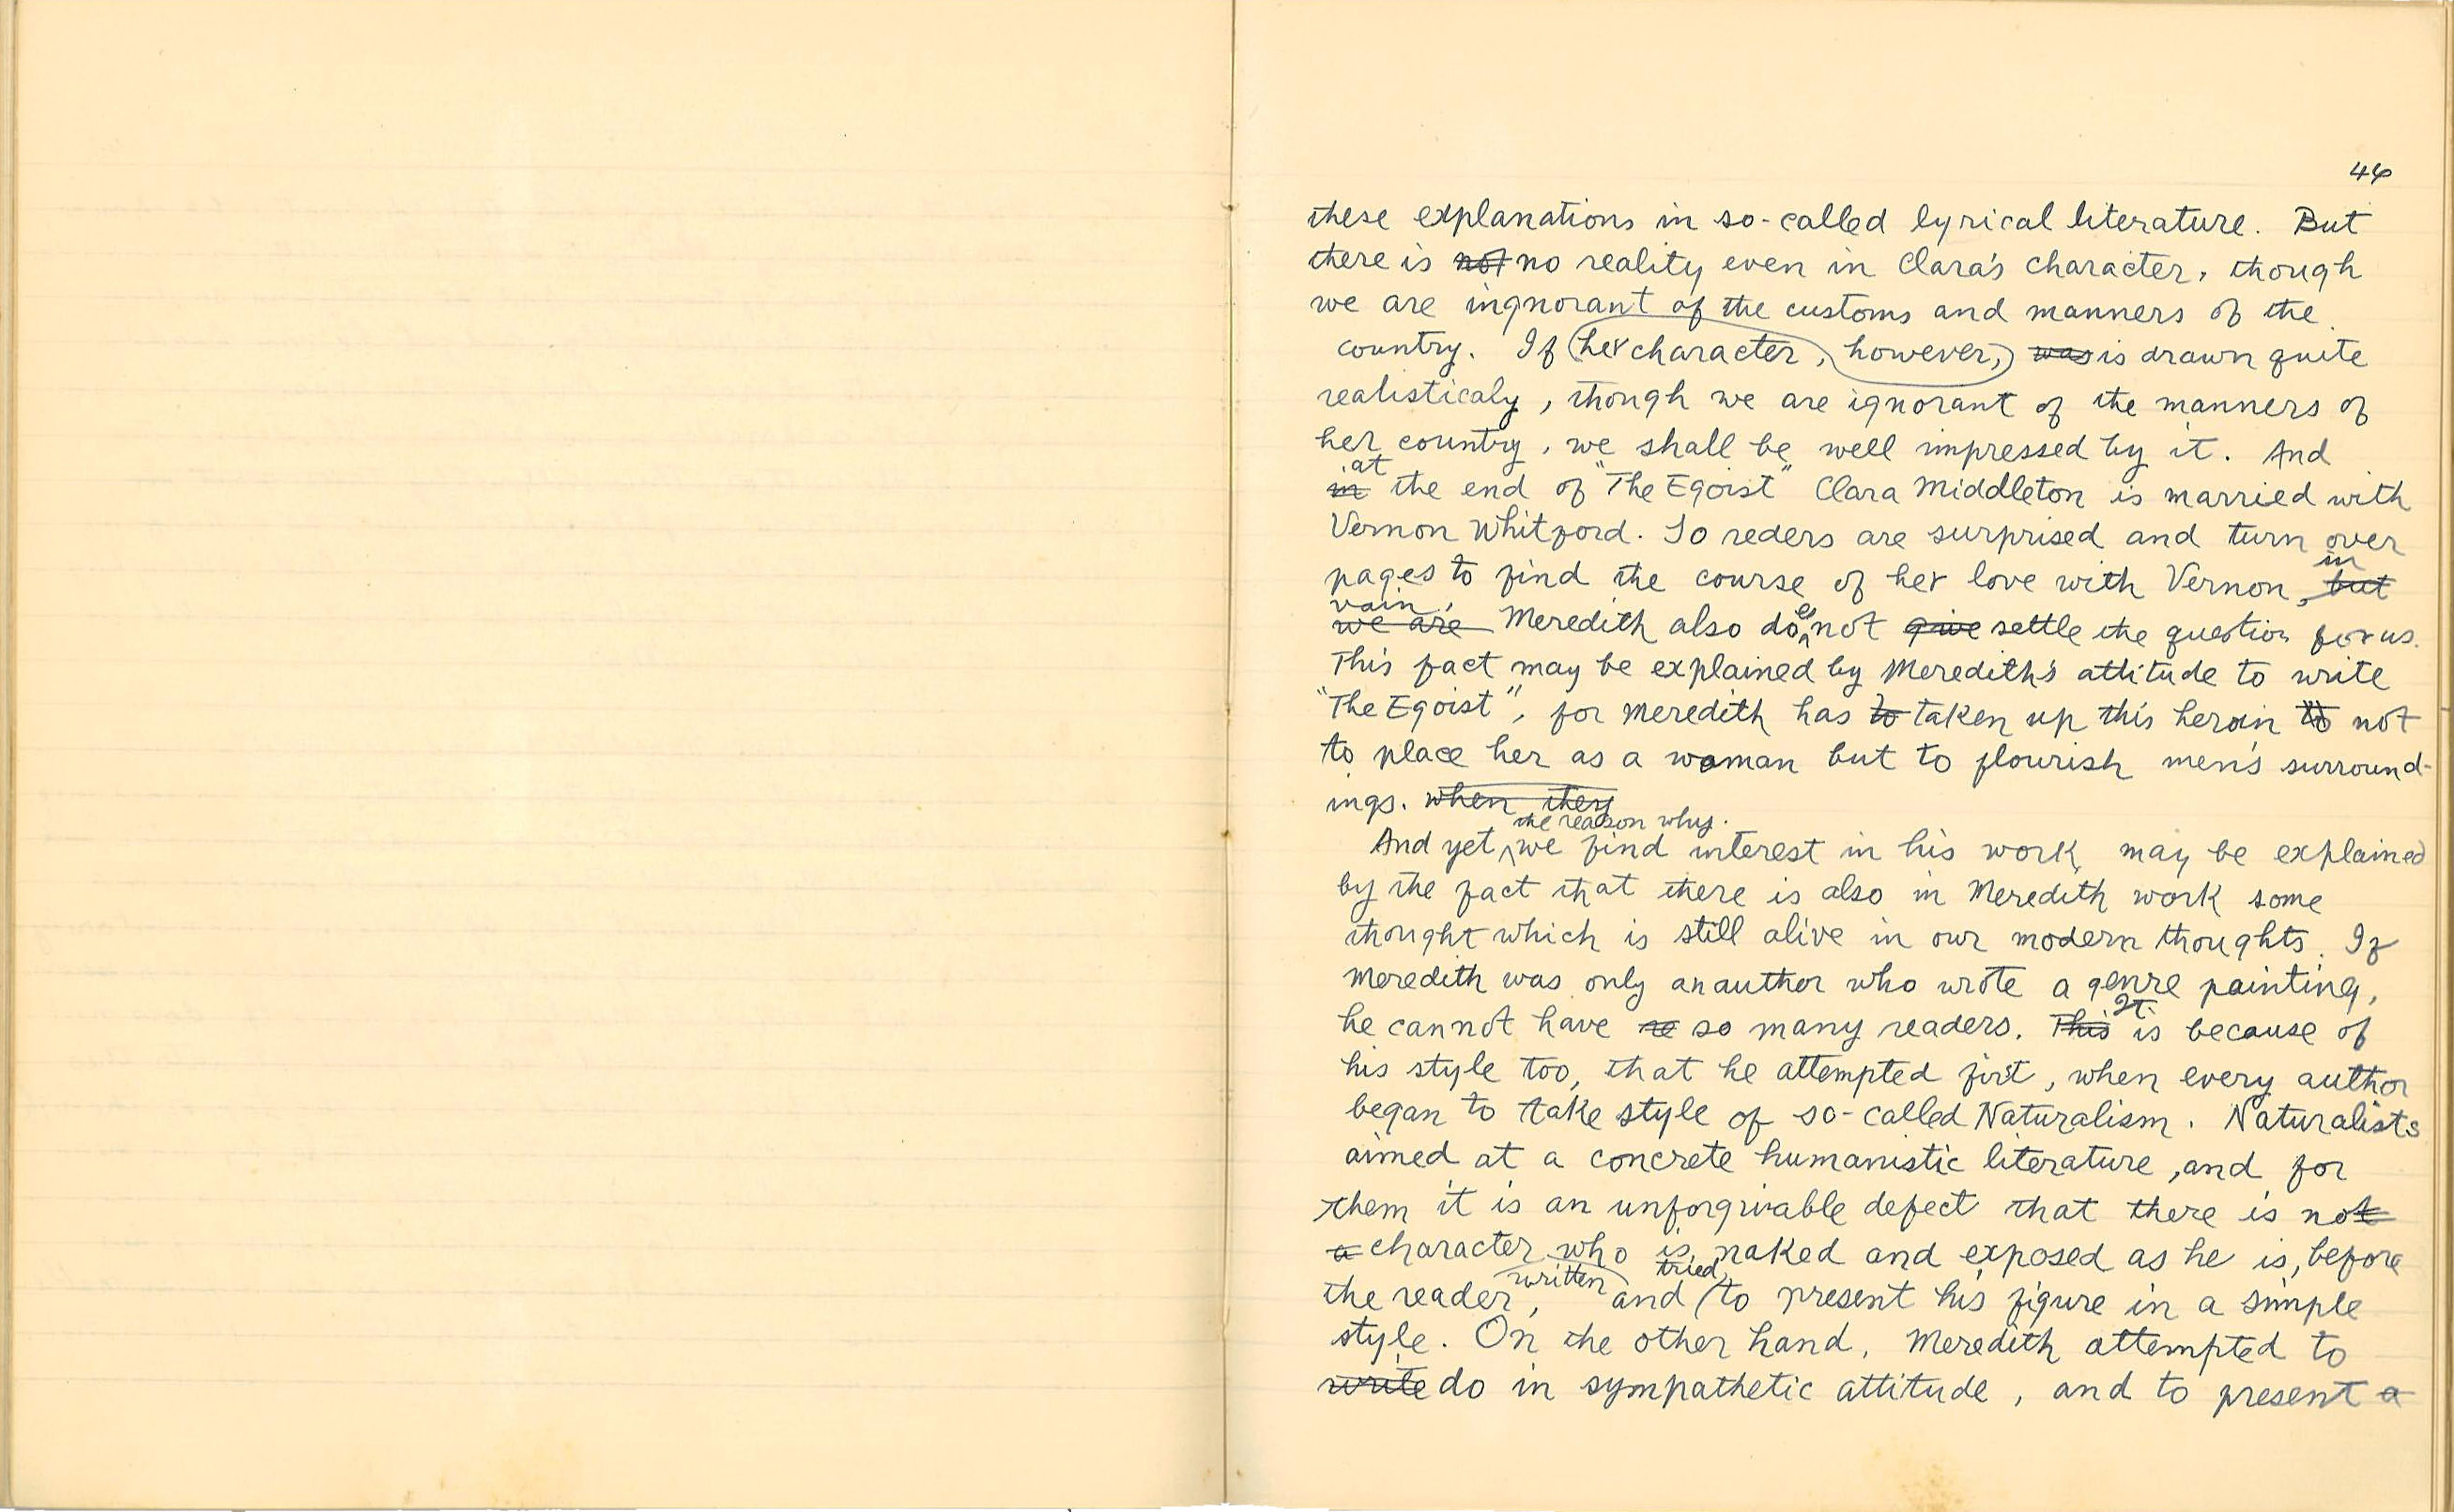 46
these explanations in so-called lyrical literature. But
there is not no reality even in Clara's character, though
we are ingnorant of the customs and manners of the
country. If her character, however, was is drawn quite
realisticaly, though we are ignorant of the manners of
her country, we shall be well impressed by it. And
at
in the end of "The Egoist" Clara Middleton is married with
Vernon Whitford. So reders are surprised and turn over
in
pages to find the course of her love with Vernon, but
vain,
we are Meredith also does not give settle the question for us.
This fact may be explained by Meredith's attitude to write
"The Egoist", for Meredith has to taken up this heroin to not
to place her as a woman but to flourish men's surround-
ings. when they
the reason why.
And yet we find interest in his work, may be explained
by the fact that there is also in Meredith work some
thought which is still alive in our modern thoughts. If
Meredith was only an author who wrote a genre painting,
It
he cannot have re so many readers. This is because of
his style too, that he attempted first, when every author
began to take style of so-called Naturalism. Naturalists
aimed at a concrete humanistic literature, and for
them it is an unforgivable defect that there is not
a character who is naked and exposed as he is, before
written tried
the reader, and to present his figure in a simple
style. On the other hand, Meredith attempted to
write do in sympathetic attitude, and to present a